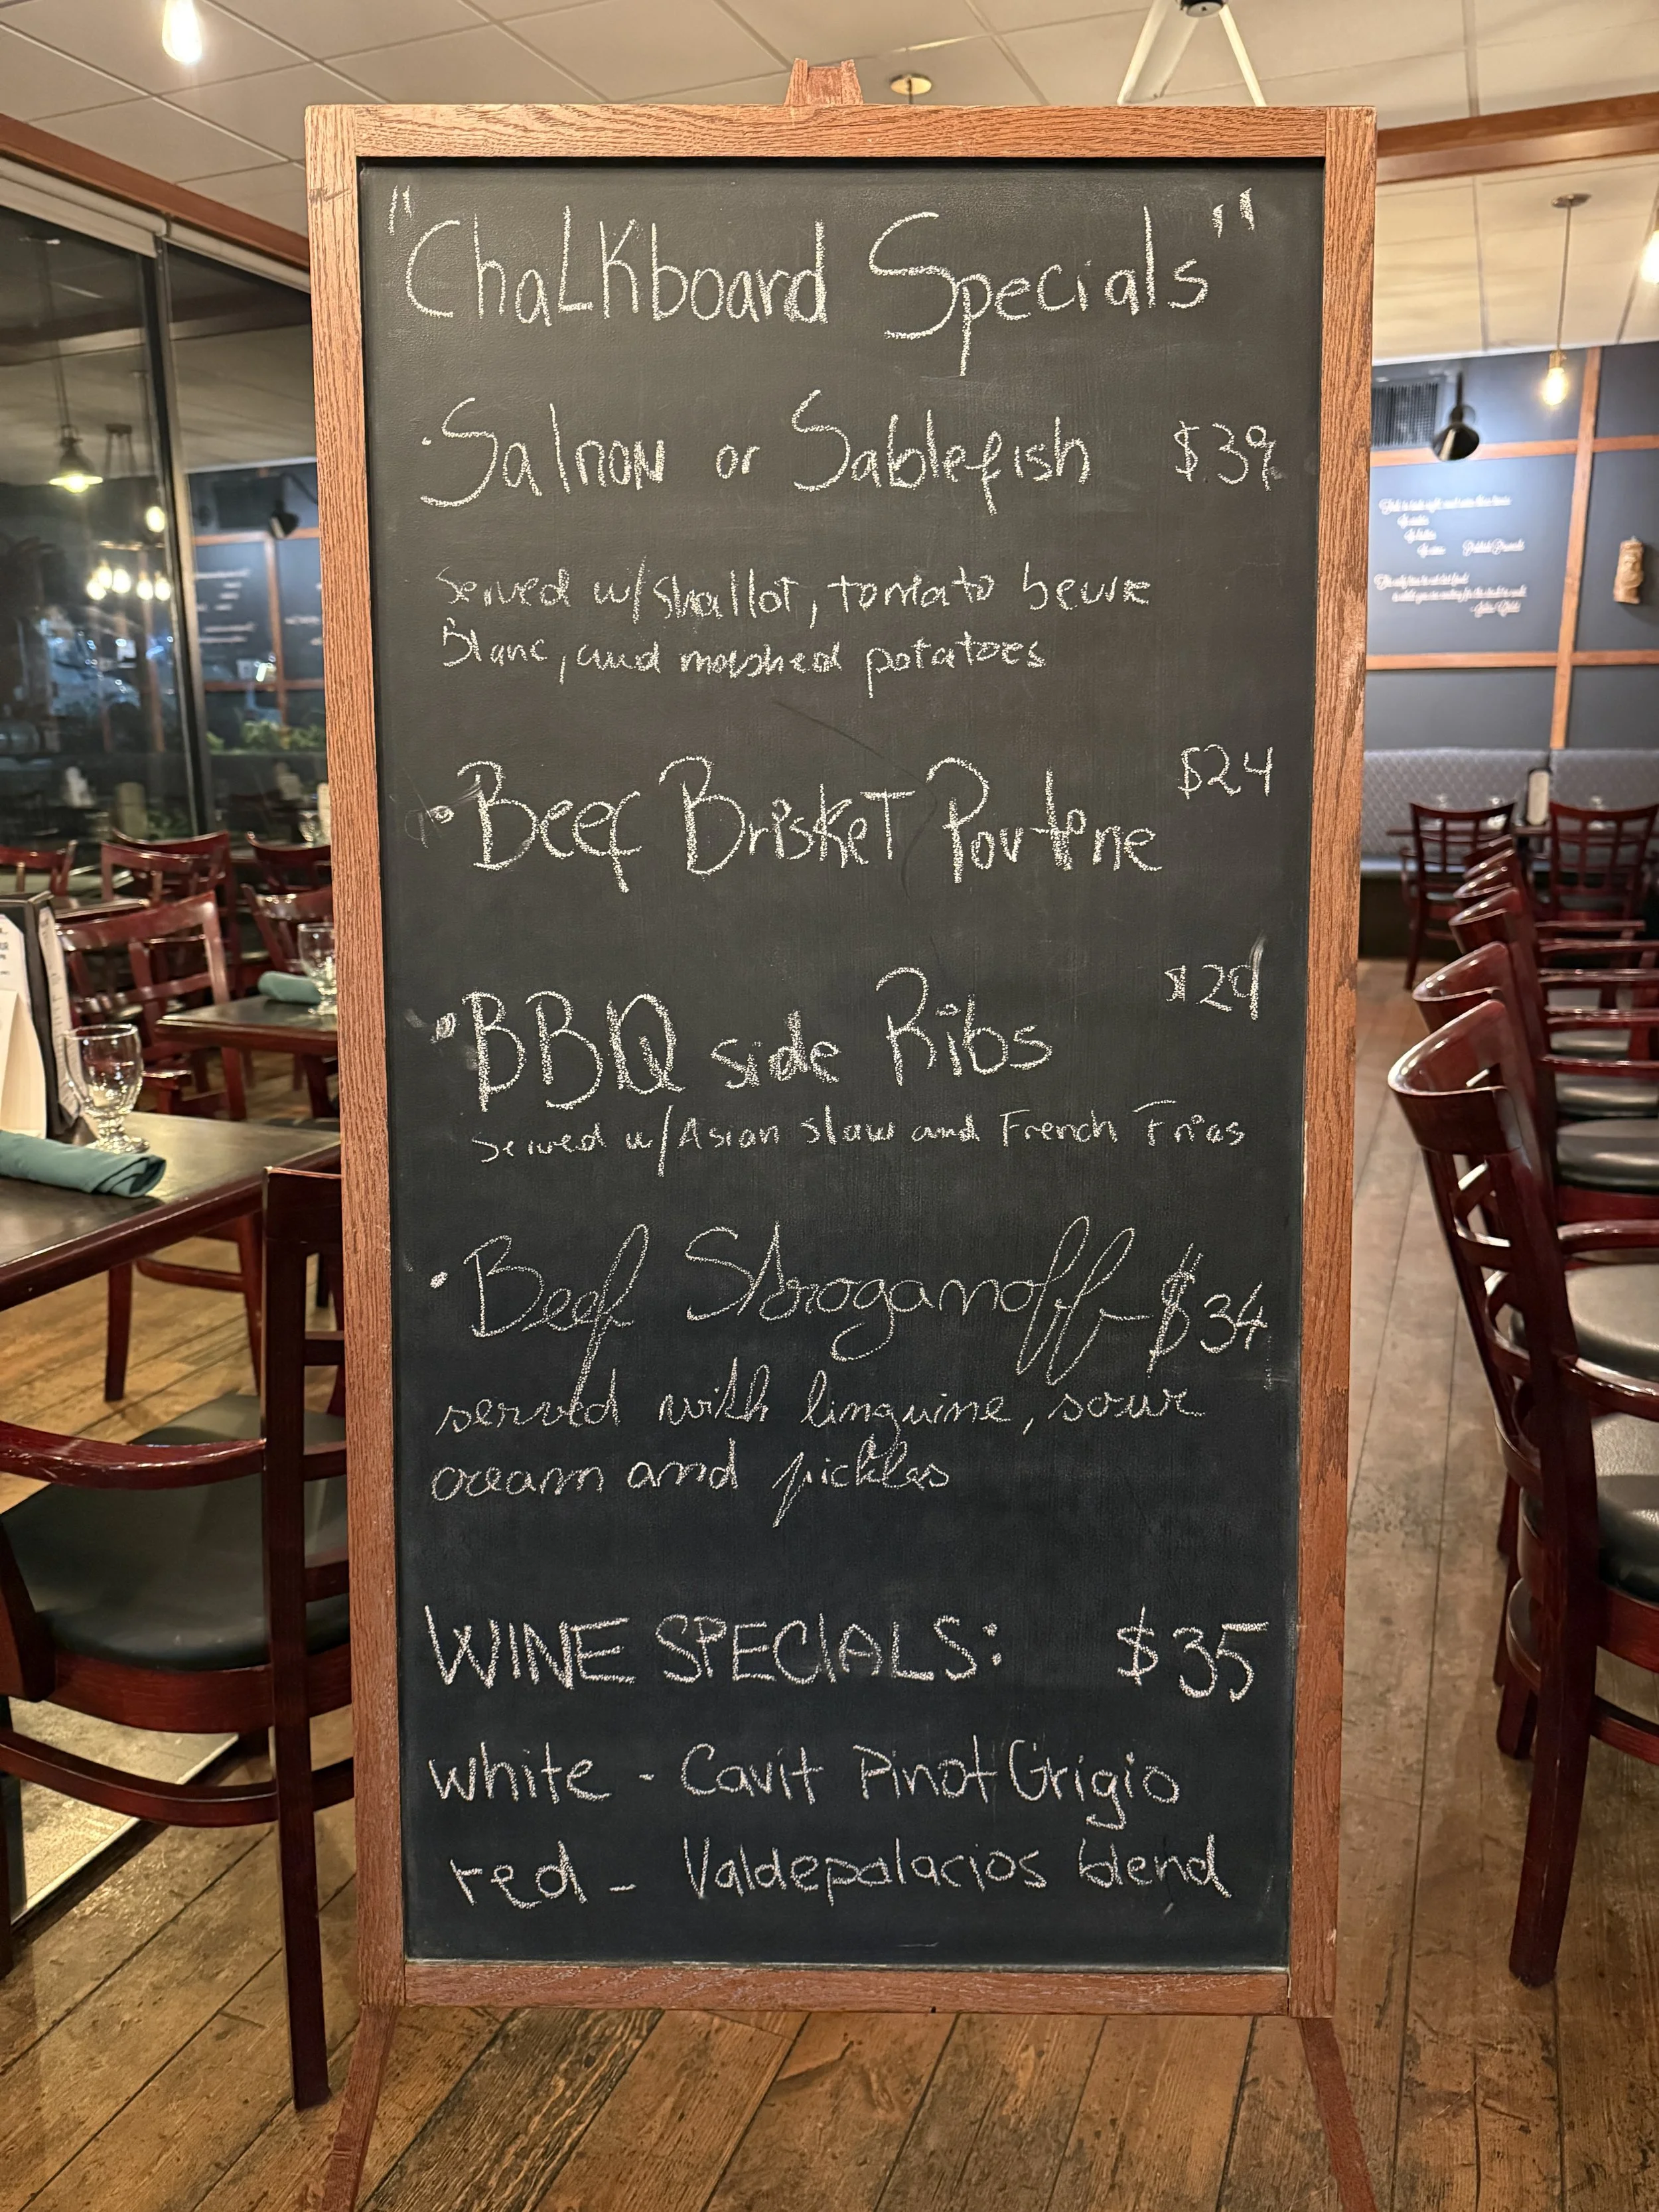 "Chalkboard Specials"
· Salmon or Sablefish $39
served w/ shallot, tomato beurre
Blanc, and mashed potatoes
$24
· Beef Brisket Poutine
$29
· BBQ side Ribs
served w/ Asian slaw and French Fries
· Beef Stroganoff - $34
served with linguine, sour
cream and pickles
WINE SPECIALS: $35
white - Cavit Pinot Grigio
red - Valdepalacios blend